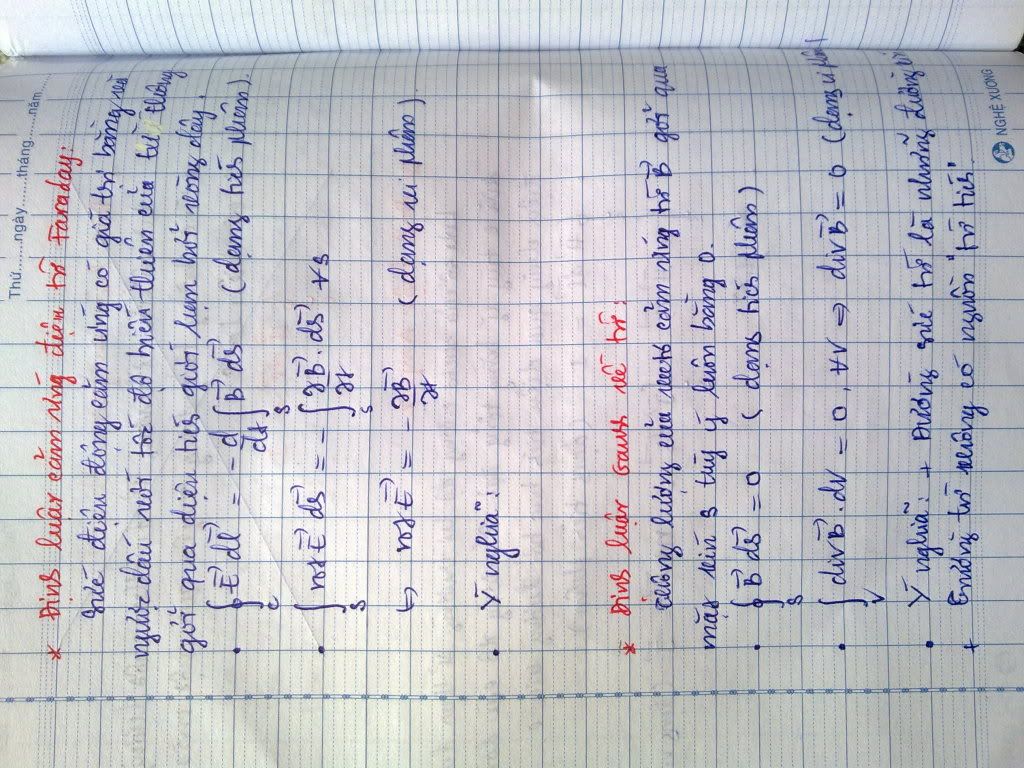 Thứ.......ngày.......tháng.......năm.......
* Định luật cảm ứng điện từ Faraday:
Sức điện động cảm ứng có giá trị bằng và
ngược dấu với tốc độ biến thiên của từ thông
gởi qua diện tích giới hạn bởi vòng dây.
• ∮_C E⃗ dl⃗ = - d/dt ∫_S B⃗ dS⃗ (dạng tích phân).
• ∫_S rot E⃗ dS⃗ = - ∫_S ∂B⃗/∂t . dS⃗ ∀S
↪ rot E⃗ = - ∂B⃗/∂t (dạng vi phân)
• Ý nghĩa:
* Định luật Gauss về từ:
Thông lượng của vectơ cảm ứng từ B⃗ gởi qua
mặt kín S tùy ý luôn bằng 0.
• ∮_S B⃗ dS⃗ = 0 (dạng tích phân)
• ∫_V div B⃗ . dV = 0, ∀V ⇒ div B⃗ = 0 (dạng vi phân)
• Ý nghĩa: + Đường sức từ là những đường
+ Trường từ không có nguồn "từ tích".
NGHỆ XƯƠNG